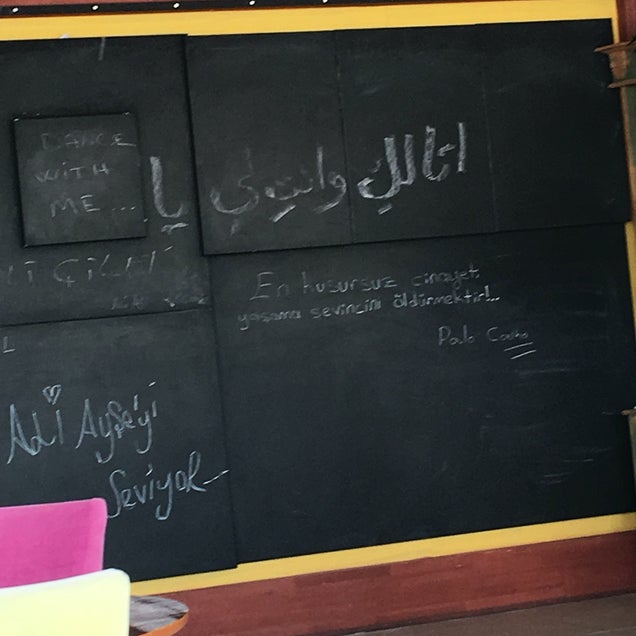 DANCE
WITH
ME...
انا لك وانتي لي يا
En kusursuz cinayet
yaşama sevincini öldürmektir!..
Paulo Coelho
Ali Ayşe'yi
Seviyor